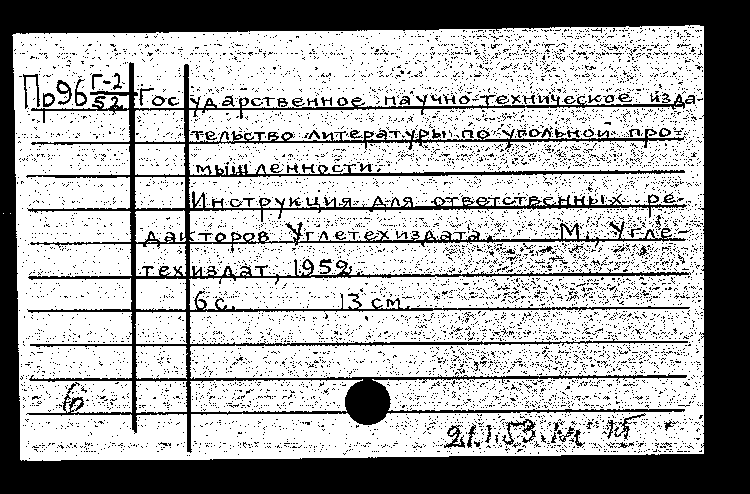 Пр96 Г-2/52 Государственное научно-техническое изда-
тельство литературы по угольной про-
мышленности.
Инструкция для ответственных ре-
дакторов Углетехиздата. М., Угле-
техиздат, 1952.
6 с. 13 см.
б
21.1.53.